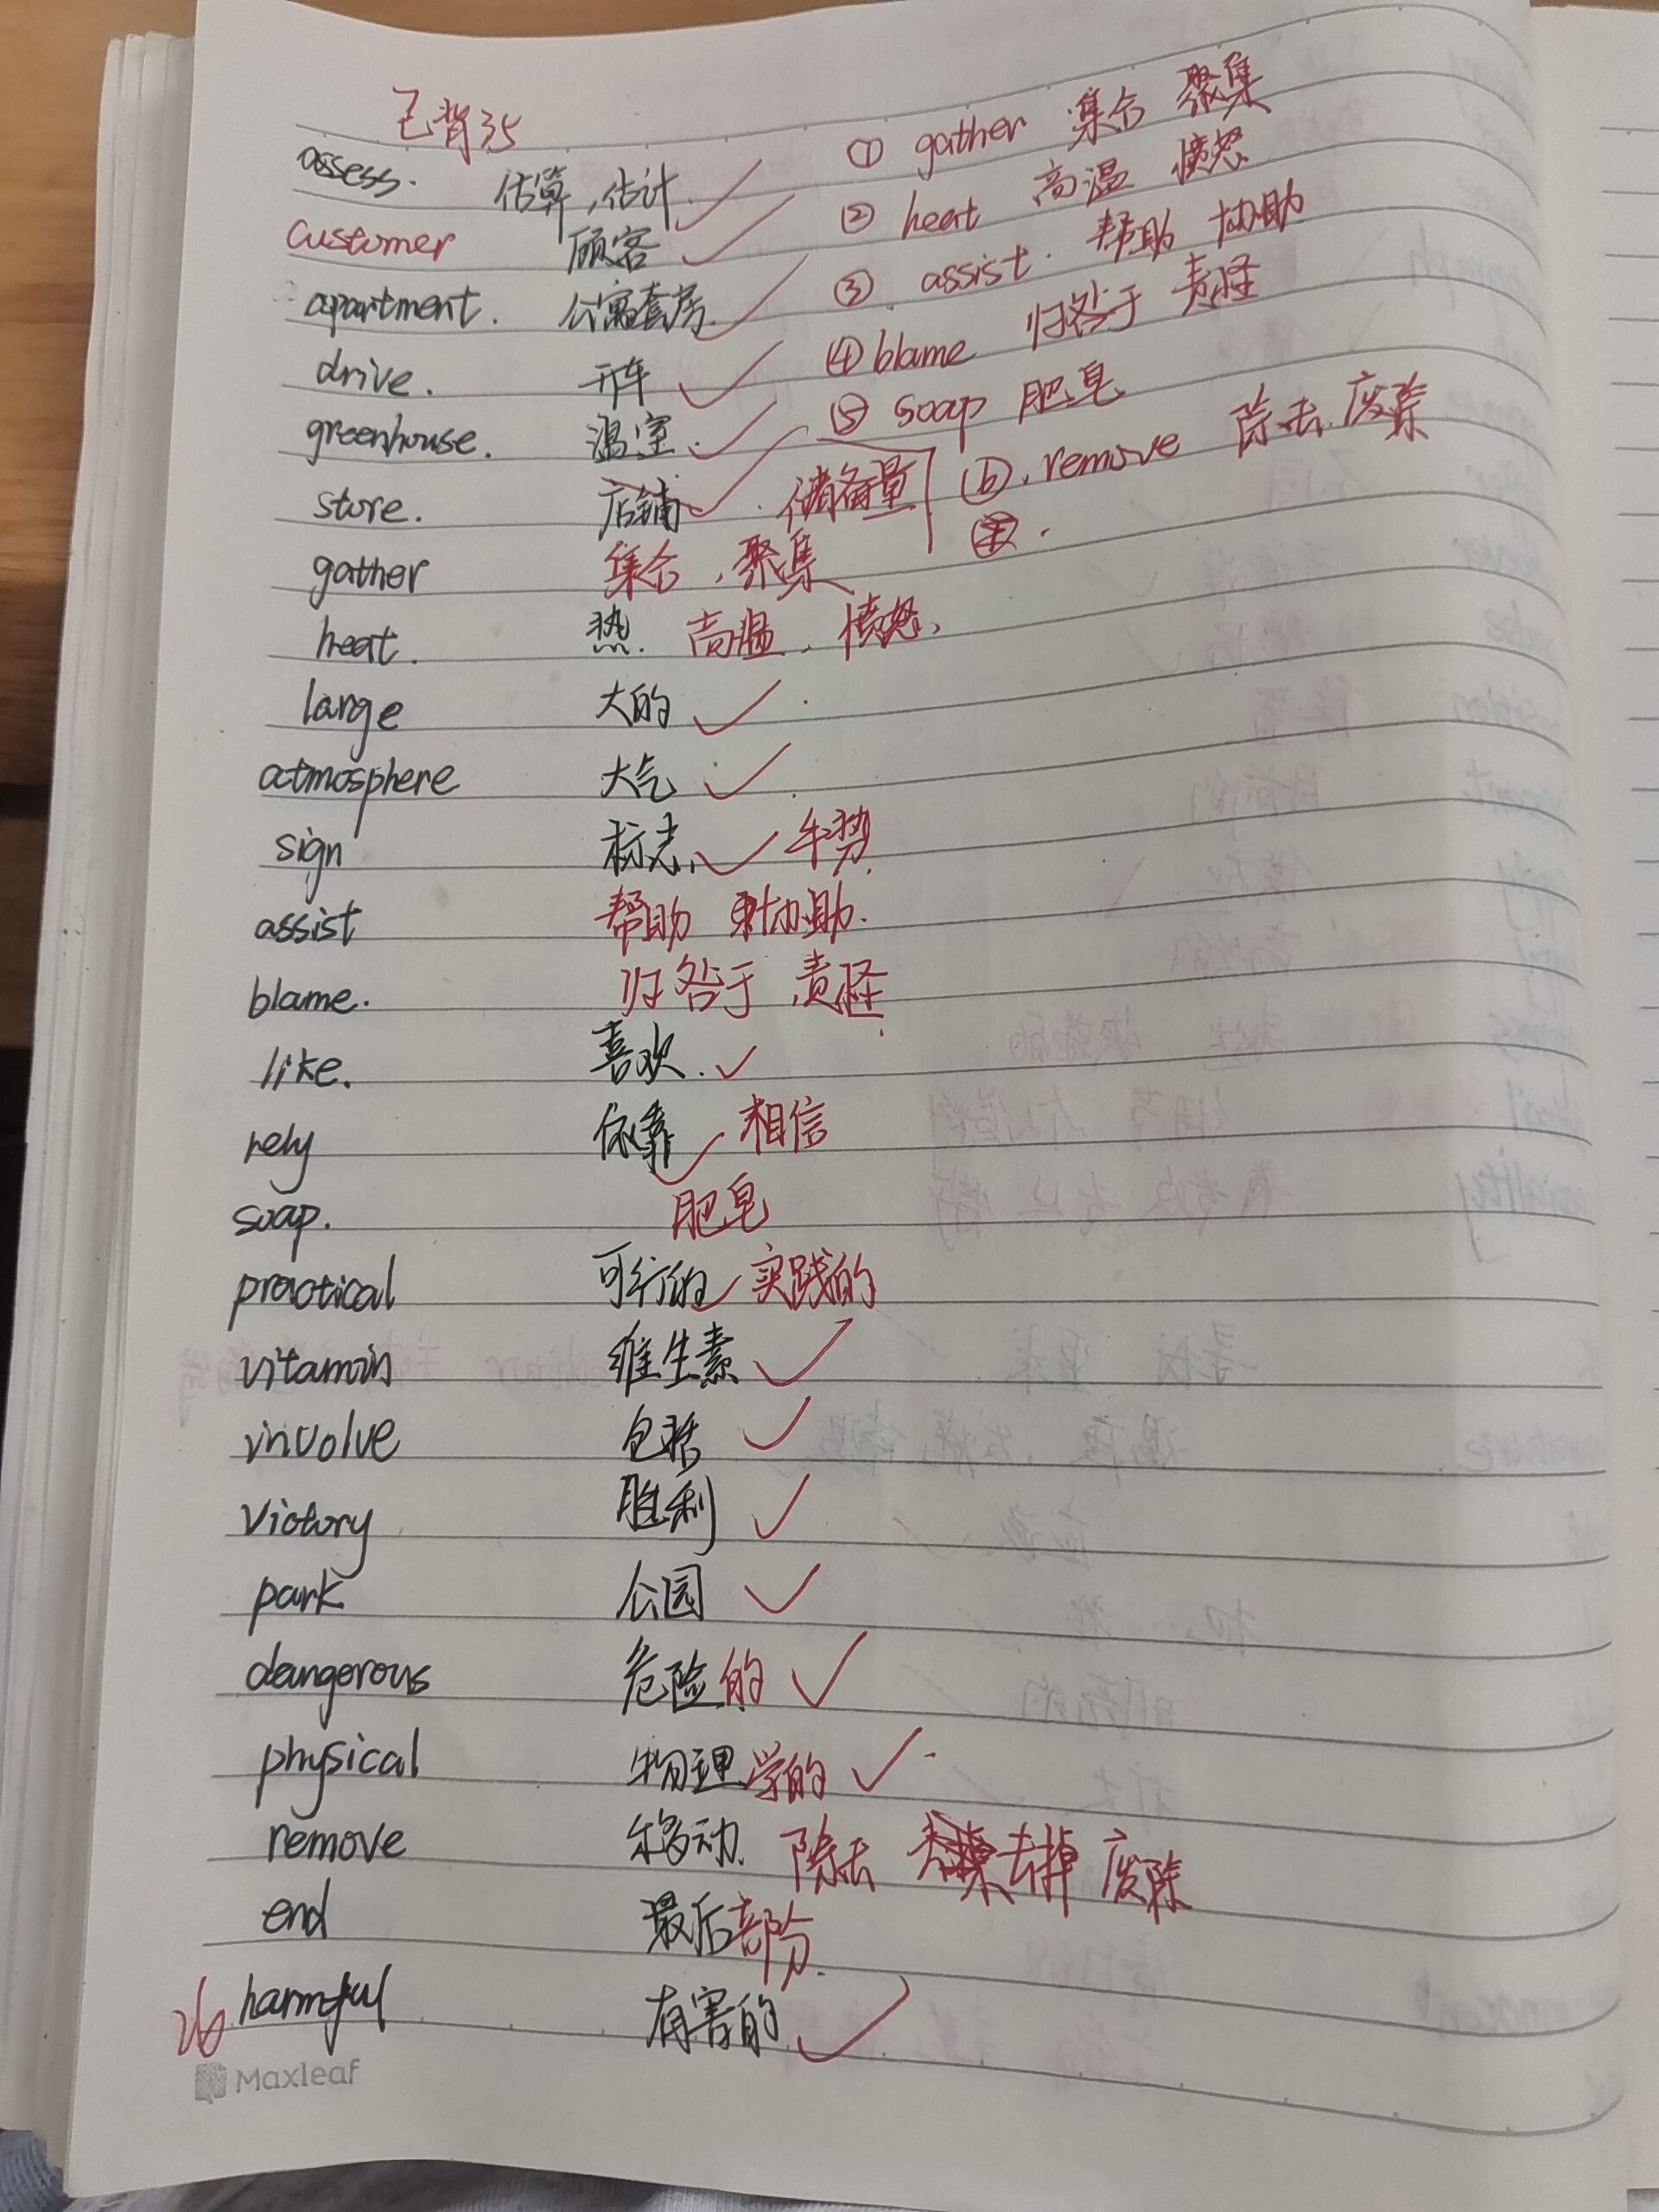 已背35
assess. 估算,估计.
customer 顾客
apartment. 公寓套房.
drive. 开车
greenhouse. 温室.
store. 店铺 . 储备量
gather 集合,聚集
heat. 热. 高温,愤怒,
large 大的
atmosphere 大气
sign 标志, 手势
assist 帮助 协助.
blame. 归咎于 责怪
like. 喜欢.
rely 依靠 相信
soap. 肥皂
practical 可行的 实践的
vitamin 维生素
involve 包括
victory 胜利
park 公园
dangerous 危险的
physical 物理学的
remove 移动. 除去 去掉 废除
end 最后部分.
26 harmful 有害的
① gather 集合 聚集
② heat 高温 愤怒
③ assist. 帮助 协助
④ blame 归咎于 责怪
⑤ soap 肥皂
⑥. remove 除去. 废除
Maxleaf